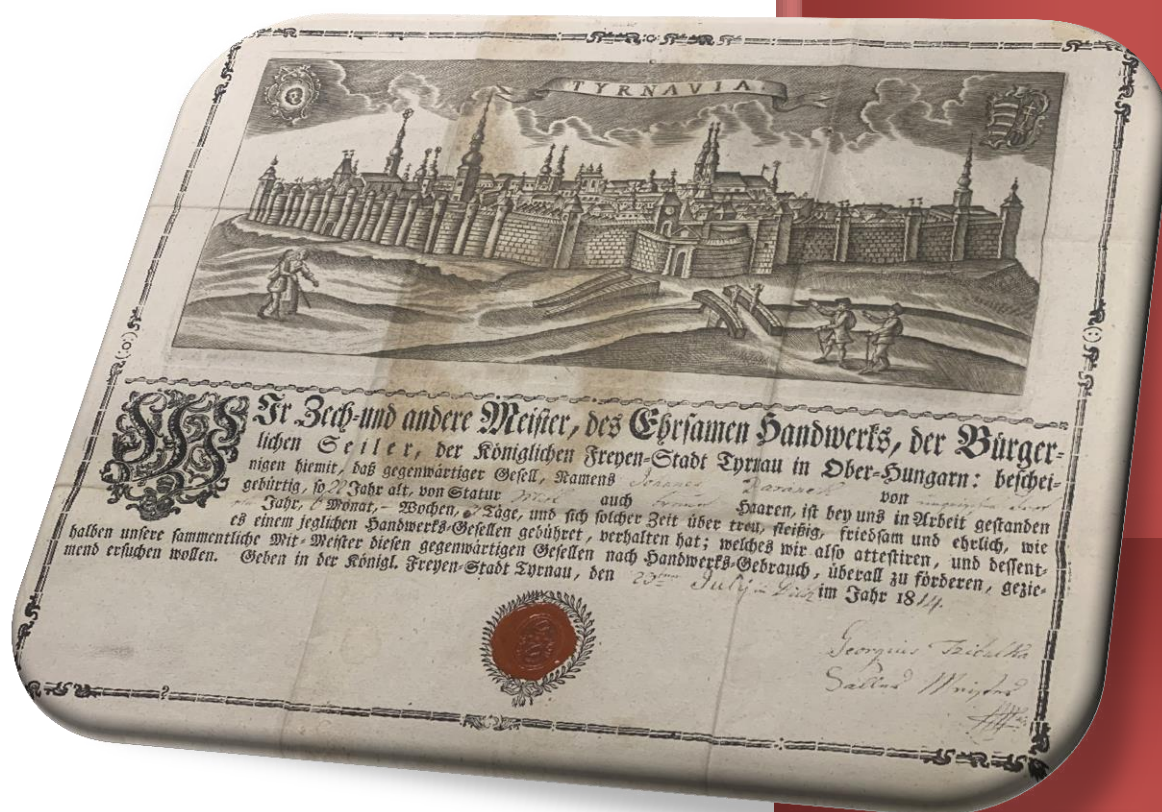 TYRNAVIA.
WIr Zech-und andere Meister, des Ehrsamen Handwerks, der Bürger-
lichen Seiler, der Königlichen Freyen-Stadt Tyrnau in Ober-Hungarn: beschei-
nigen hiemit, daß gegenwärtiger Gesell, Namens Joannes von
gebürtig, so 22 Jahr alt, von Statur auch Haaren, ist bey uns in Arbeit gestanden
Jahr, 6 Monat, - Wochen, Täge, und sich solcher Zeit über treu, fleißig, friedsam und ehrlich, wie
es einem jeglichen Handwerks-Gesellen gebühret, verhalten hat; welches wir also attestiren, und dessent-
halben unsere sammentliche Mit-Meister diesen gegenwärtigen Gesellen nach Handwerks-Gebrauch, überall zu förderen, gezie-
mend ersuchen wollen. Geben in der Königl. Freyen-Stadt Tyrnau, den 23 July im Jahr 1814.
Georgius